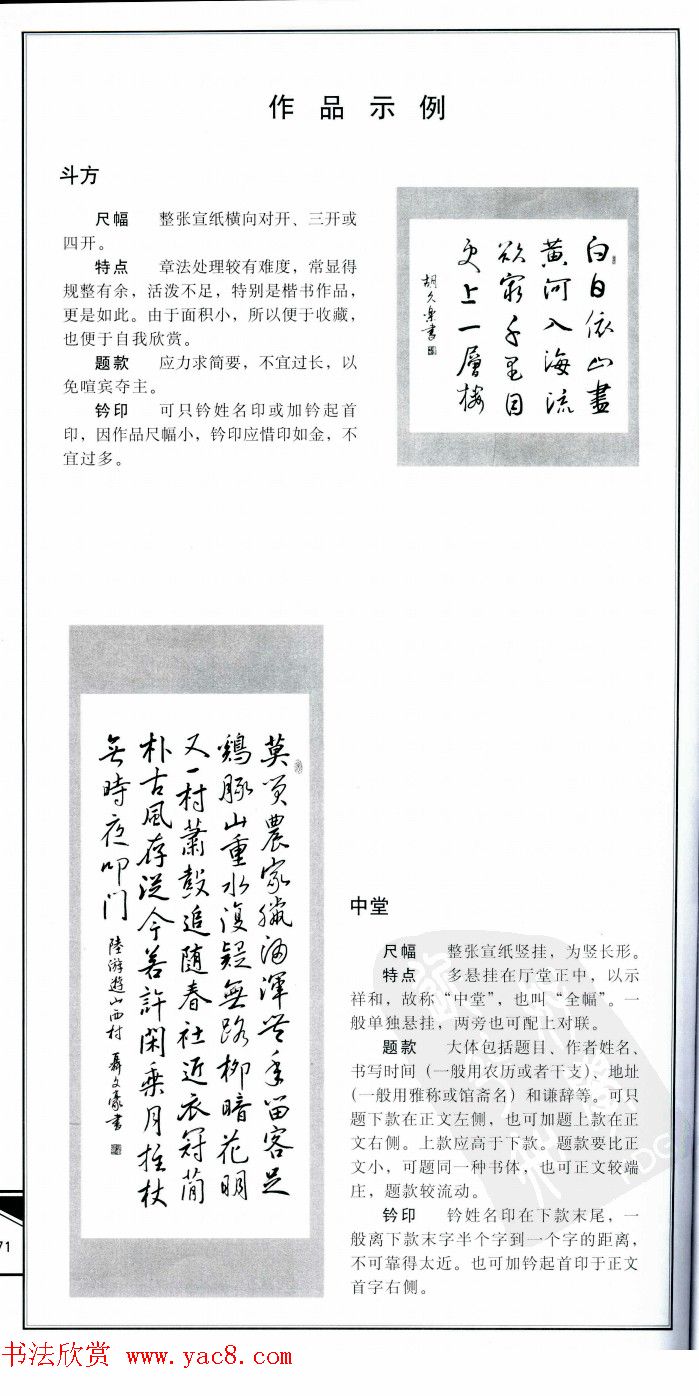 作品示例
斗方
尺幅 整张宣纸横向对开、三开或
四开。
特点 章法处理较有难度，常显得
规整有余，活泼不足，特别是楷书作品，
更是如此。由于面积小，所以便于收藏，
也便于自我欣赏。
题款 应力求简要，不宜过长，以
免喧宾夺主。
钤印 可只钤姓名印或加钤起首
印，因作品尺幅小，钤印应惜印如金，不
宜过多。
白日依山盡
黄河入海流
欲窮千里目
更上一層楼
胡久奉書
莫笑農家臘酒渾豊年留客足
鷄豚山重水復疑無路柳暗花明
又一村蕭鼓追随春社近衣冠簡
朴古風存從今若許閑乘月拄杖
無時夜叩门
陸游遊山西村 聶文豪書
中堂
尺幅 整张宣纸竖挂，为竖长形。
特点 多悬挂在厅堂正中，以示
祥和，故称“中堂”，也叫“全幅”。一
般单独悬挂，两旁也可配上对联。
题款 大体包括题目、作者姓名、
书写时间（一般用农历或者干支）、地址
(一般用雅称或馆斋名）和谦辞等。可只
题下款在正文左侧，也可加题上款在正
文右侧。上款应高于下款。题款要比正
文小，可题同一种书体，也可正文较端
庄，题款较流动。
钤印 钤姓名印在下款末尾，一
般离下款末字半个字到一个字的距离，
不可靠得太近。也可加钤起首印于正文
首字右侧。
71
书法欣赏 www.yac8.com